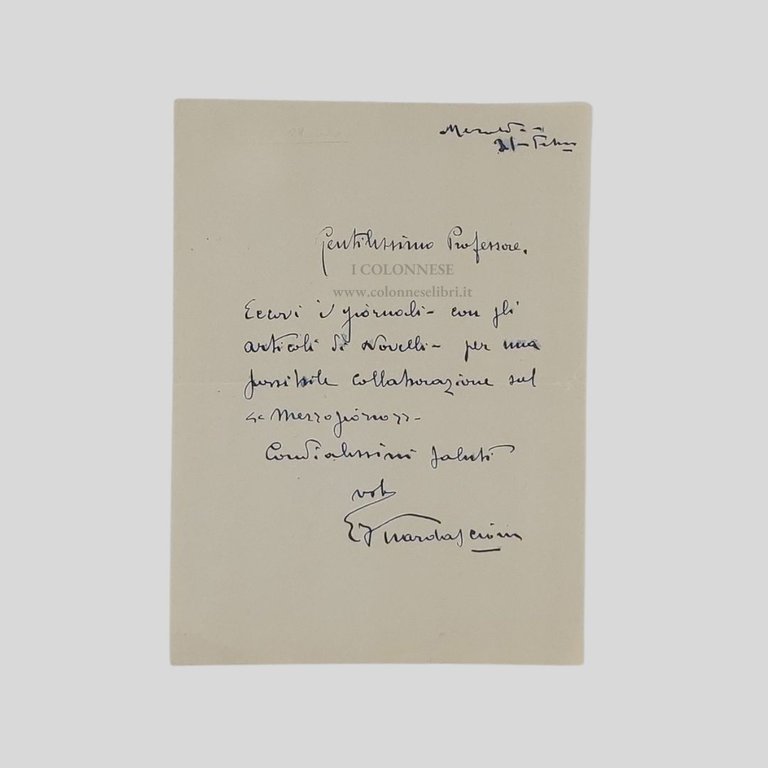 21-
Gentilissimo Professore.
I COLONNESE
www.colonneselibri.it
Eccovi i giornali - con gli
articoli di Novelli - per una
possibile collaborazione sul
"Mezzogiorno" -
Cordialissimi saluti